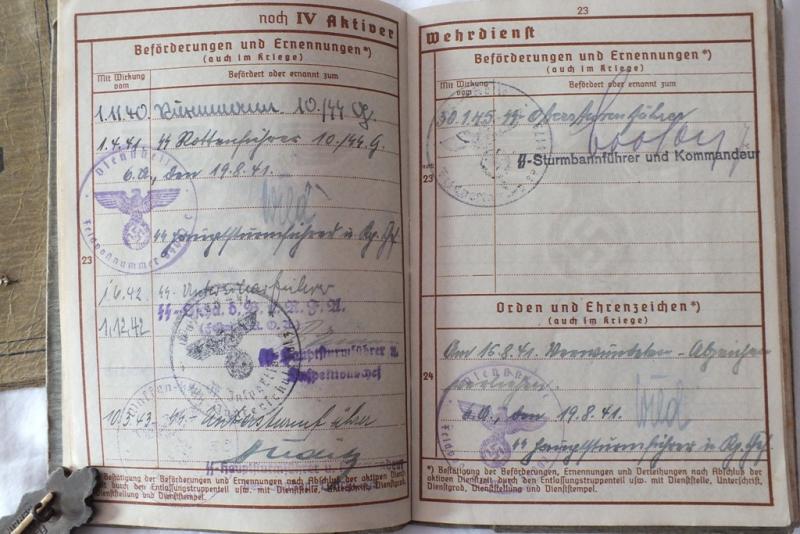 noch IV Aktiver
Beförderungen und Ernennungen*)
(auch im Kriege)
Mit Wirkung vom
Befördert oder ernannt zum
1.11.40.
10./SS
1.4.41. SS Rottenführer 10./SS.
O.U., den 19.8.41.
Dienststelle
Feldpostnummer
SS Hauptsturmführer u. Kp. Chef
23
1.6.42 SS-Unterscharführer
1.12.42
SS-Hauptsturmführer u.
Inspektionschef
10.3.43 SS-Untersturmführer
SS-Hauptsturmführer
*) Bestätigung der Beförderungen und Ernennungen nach Abschluß der aktiven Dienstzeit
durch den Entlassungstruppenteil usw. mit Dienststelle, Unterschrift, Dienstgrad,
Dienststellung und Dienststempel.
23
Wehrdienst
Beförderungen und Ernennungen*)
(auch im Kriege)
Mit Wirkung vom
Befördert oder ernannt zum
30.1.45. SS-Obersturmführer
SS-Sturmbannführer und Kommandeur
23
Orden und Ehrenzeichen*)
(auch im Kriege)
Am 15.8.41. Verwundeten-Abzeichen
verliehen.
24
O.U., den 19.8.41.
Dienststelle
SS Hauptsturmführer u. Kp. Chef
*) Bestätigung der Beförderungen, Ernennungen und Verleihungen nach Abschluß der
aktiven Dienstzeit durch den Entlassungstruppenteil usw. mit Dienststelle, Unterschrift,
Dienstgrad, Dienststellung und Dienststempel.